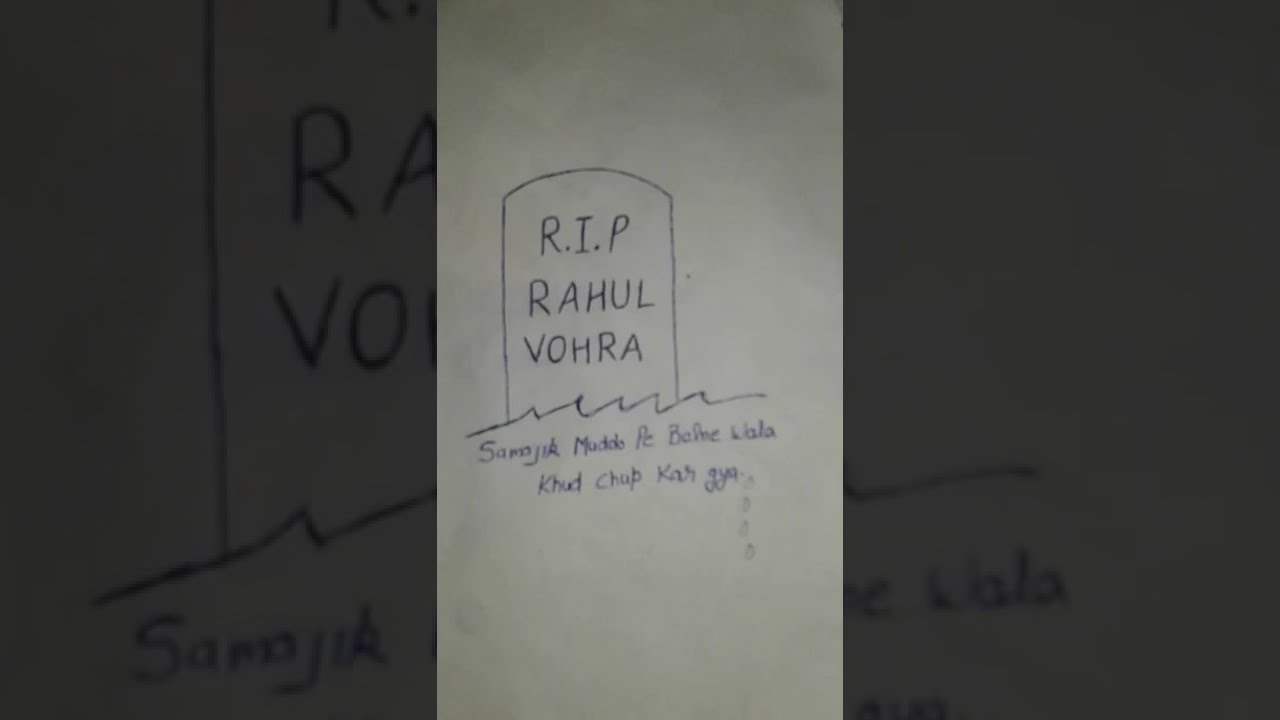 R.I.P
RAHUL
VOHRA
Samajik Muddo Pe Bolne Wala
Khud Chup Kar gya..